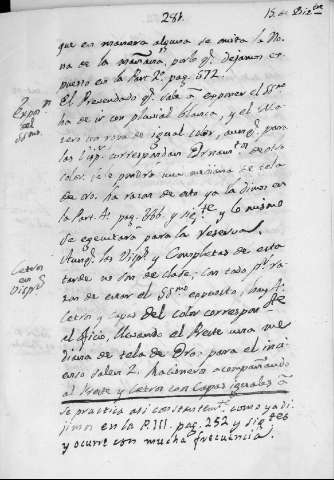 281. 15. de Diz.bre
que en manera alguna se omita la No-
na de la mañana, por lo q.e dejamos ex-
puesto en la Part.e 2.a pag. 572.
Expos.n del SS.mo
El Prevendado q.e sale a exponer el SS.mo
ha de ir con pluvial blanco, y el
con ropa de igual color, aunq.e para
las Visp.s correspondan Ornam.tos de otro
color: se le pondrá una mediana de tela
de oro. La razon de esto ya la dimos en
la Part. 4.a pag. 666. y sig.te y lo mismo
se egecutará para la reserva.
Cetros en Visp.s
Aunq.e las Visp.s y Completas de esta
tarde no son de clase; con todo p.r ra-
zon de estar el SS.mo expuesto, hay
Cetros y Capas del color correspond.te
el Oficio, llevando el Preste una me-
diana de tela de Oro: para el inci-
enso salen 2. Racioneros acompañando
al Preste y Cetros con Capas iguales
se practica asi constantem.te como ya di-
jimos en la P. III. pag. 252 y sig.tes
y ocurre con mucha frecuencia.